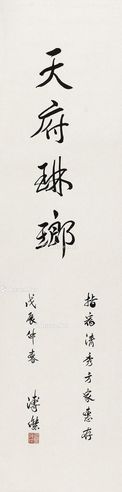 天府琳瑯
指病清秀方家惠存
戊辰仲春
溥杰